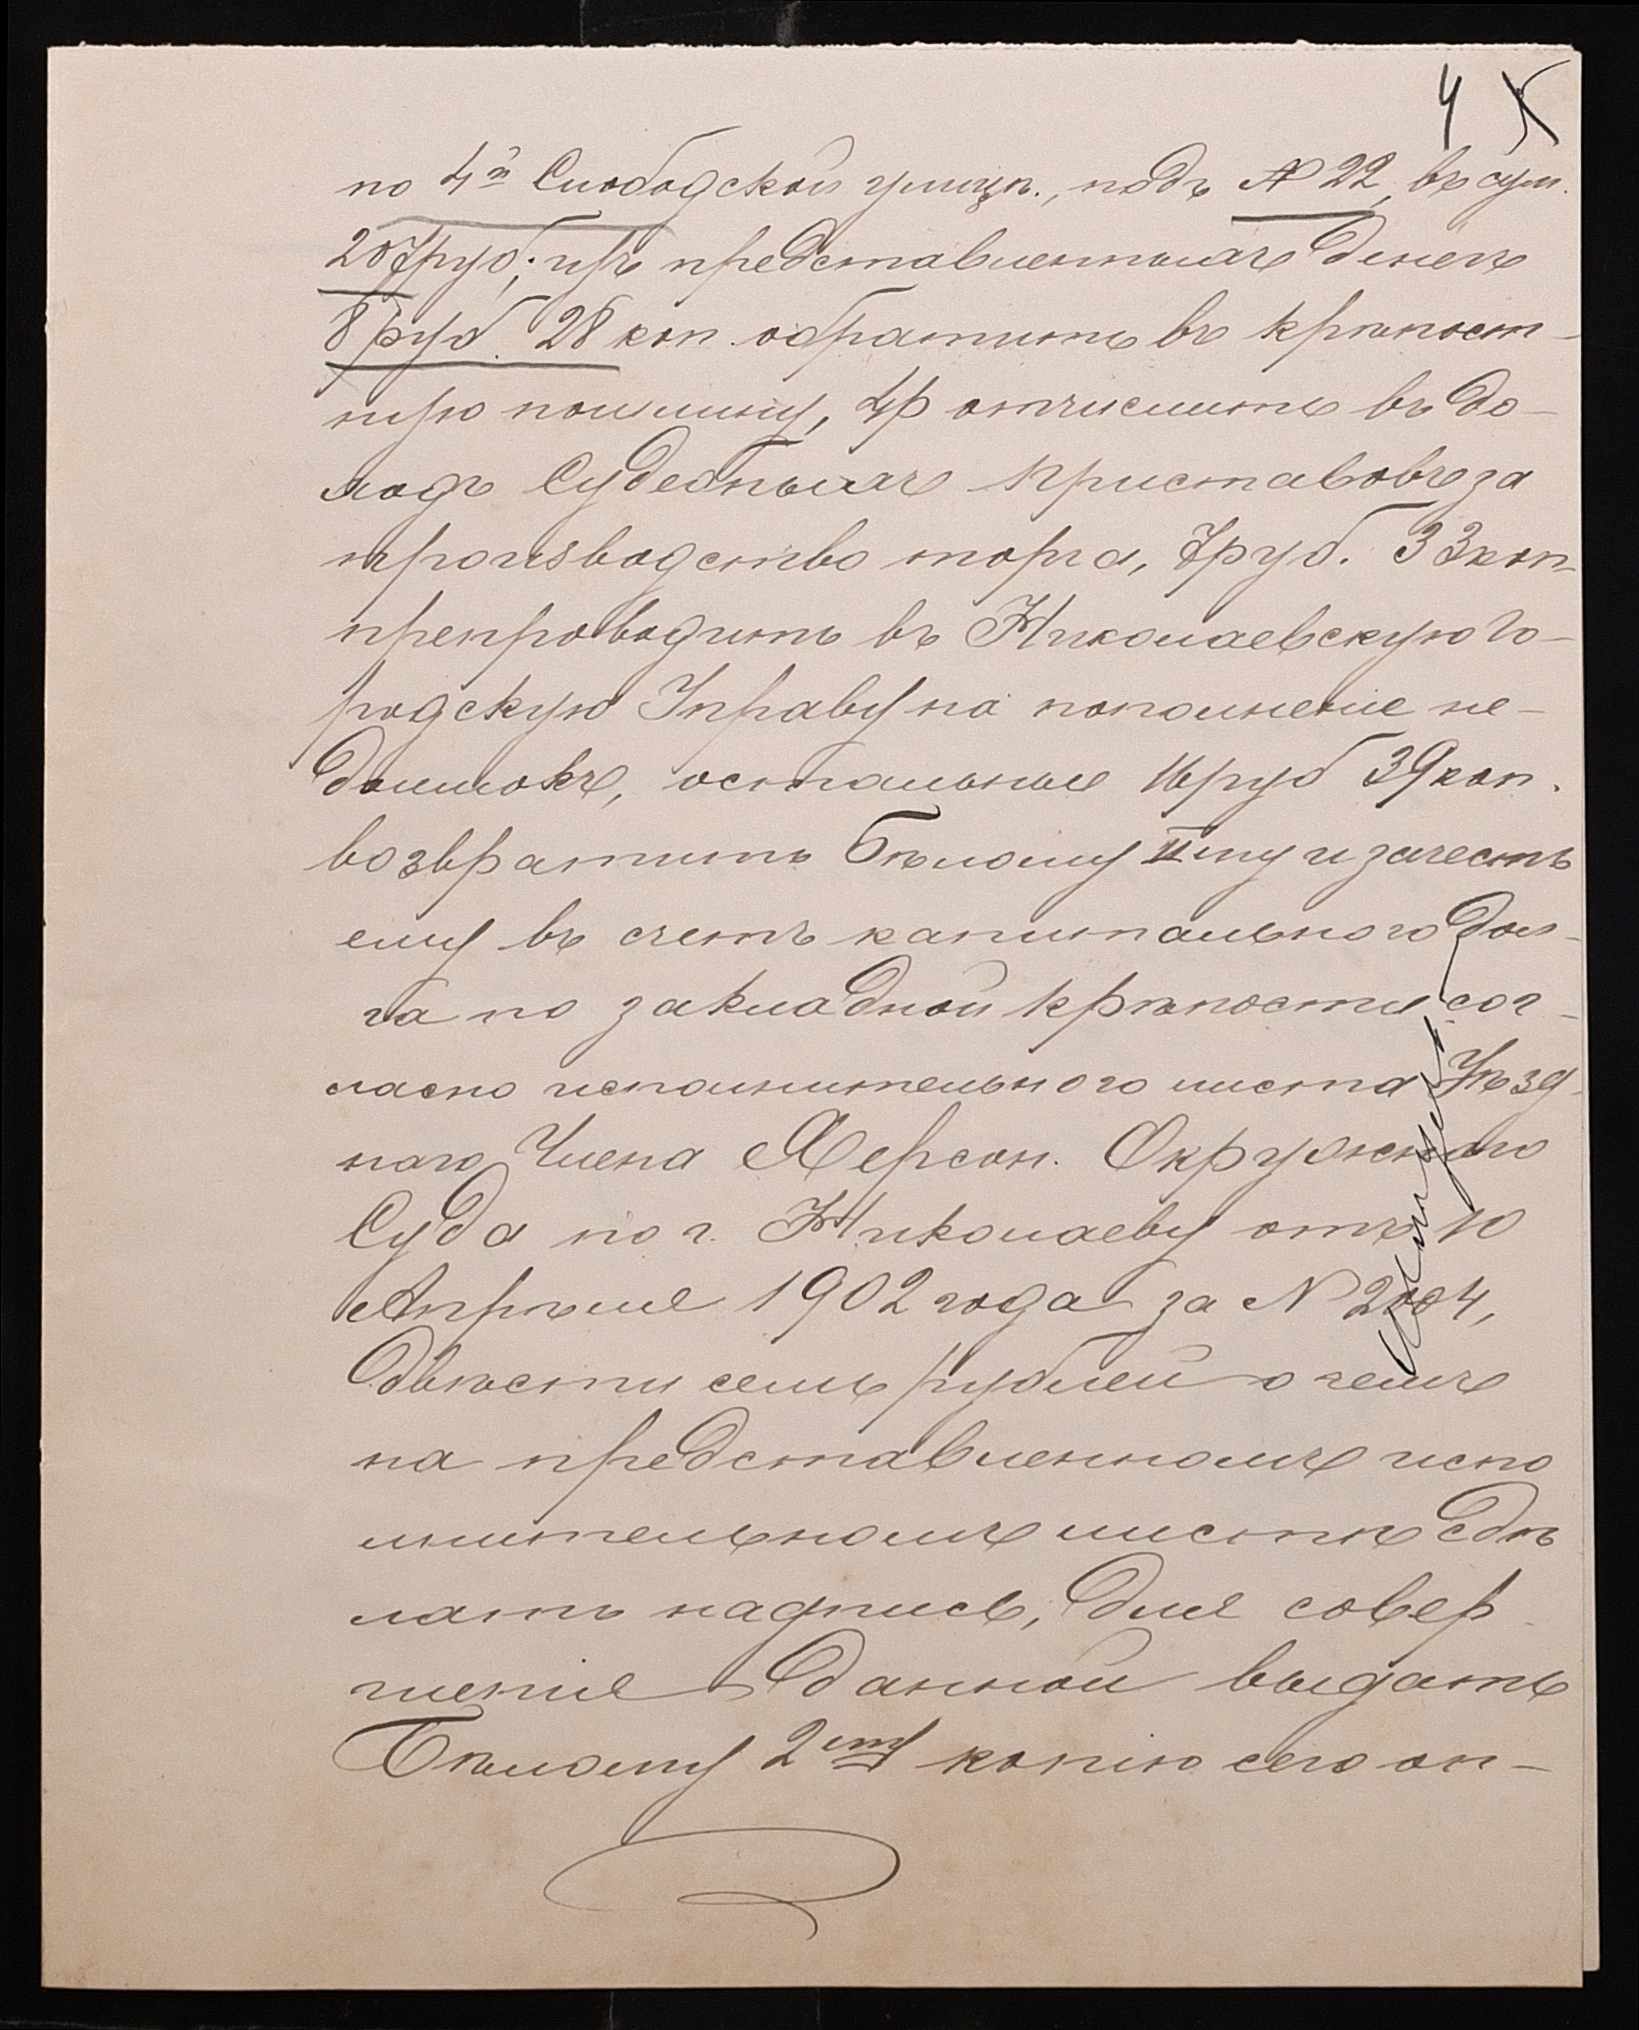 4
по 4й Слободской улицѣ, подъ № 22, въ сум.
207 руб; изъ представленныхъ денегъ
8 руб. 28 коп. обратить въ крѣпост-
ную пошлину, 4р отчислить въ до-
ходъ Судебныхъ Приставовъ за
производство торга, 7 руб. 33 коп
препроводить въ Николаевскую Го-
родскую Управу на пополненіе не-
доимокъ, остальные 16 руб 39 коп.
возвратить Бѣлому IIму и зачесть
ему въ счетъ капитальнаго дол-
га по закладной крѣпости сог-
ласно исполнительнаго листа Уѣзд-
наго Члена Херсон. Окружнаго
Суда по г. Николаеву отъ 10
Апрѣля 1902 года за № 2004,
двѣсти семь рублей о чемъ
на представленномъ испо
лнительномъ листѣ сдѣ
лать надпись, для совер-
шенія данной выдать
Бѣлому 2му копію сего оп-